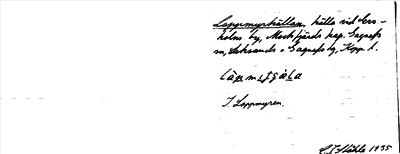 Loppmyrkällan, källa vid Sers-
holms by, Mockfjärds kap. Gagnefs
sn, Leksands o Gagnefs tg, Kopp. l.
I Loppmyren.
1935